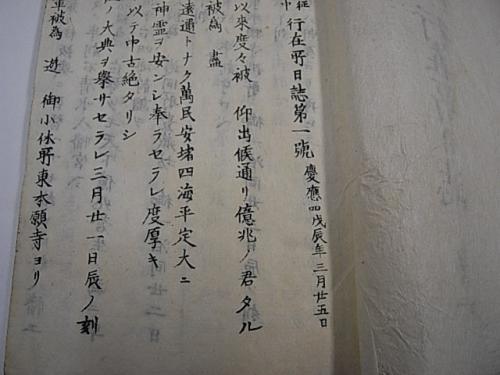 行在所日誌第一號 慶應四戊辰年三月廿五日
以來度々被 仰出候通リ億兆ノ君タル
被為 盡
遠邇トナク萬民安堵四海平定大ニ
神靈ヲ安ンシ奉ラセラレ度厚キ
以テ中古絶タリシ
ノ大典ヲ舉サセラレ三月廿一日辰ノ刻
被為 遊 御小休所東本願寺ヨリ